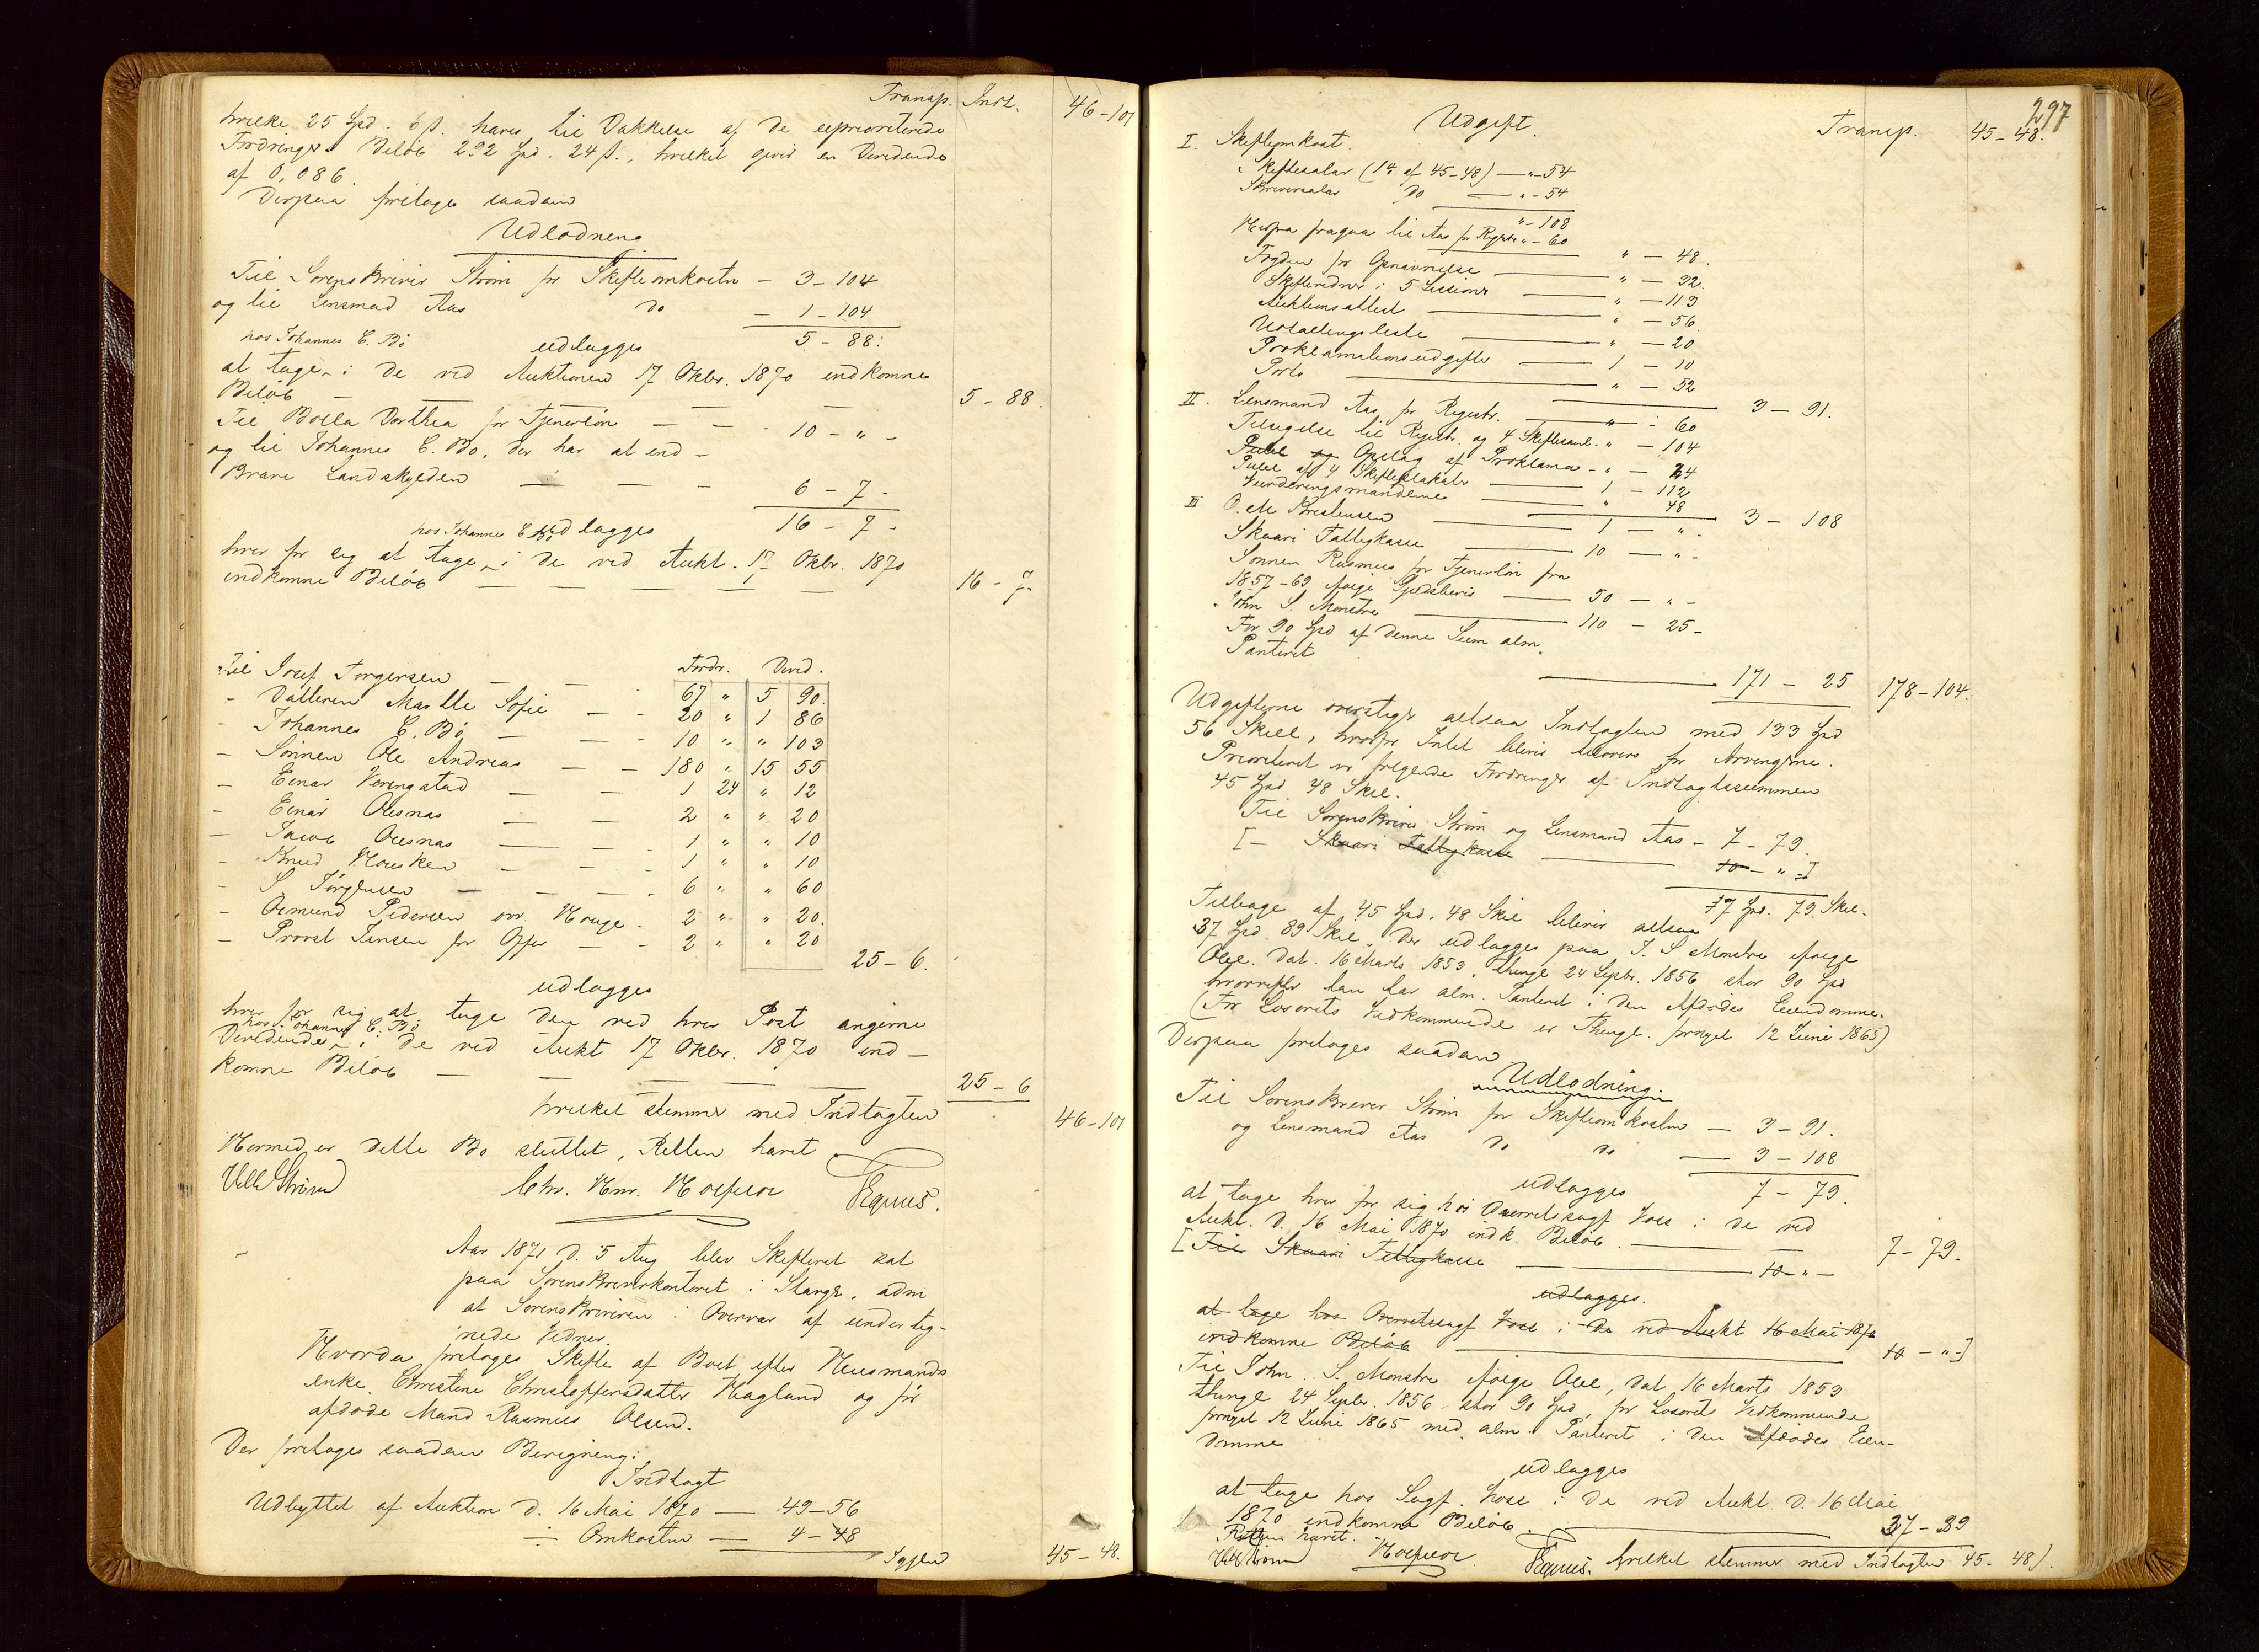 Transp. Indt. 46-101
hvilke 25 Spd. 6 ß. haves til Dækkelse af de uprioriterede
Fordringers Beløb 292 Spd. 24 ß., hvilket giver en Dividende
af 0,086.
Derpaa foretoges saadan
Udlodning
Til Sorenskriver Strøm for Skifteomkostn - 3-104
og til Lensmand Aas do - 1-104
5-88.
hos Johannes C. Bø udlægges
at tage i de ved Auktionen 17 Oktbr. 1870 indkomne
Beløb — — — — — 5-88.
Til Bolla Dorthea for Tjenerløn — — 10-"-
og til Johannes C. Bø, der har at ind-
kræve Landskylden — — — 6-7-
16-7-
hos Johannes C. Bø udlægges
hver for sig at tage i de ved Aukt. 17 Oktbr. 1870
indkomne Beløb — — — — — 16-7-
Fordr. Divid.
Til Josef Torgersen — — 67 " 5 90
- Datteren Malle Sofie — — 20 " 1 86
- Johannes C. Bø — — 10 " " 103
- Sønnen Ole Andreas — — 180 " 15 55
- Einar Voringstad — — 1 24 " 12
- Einar Olesnæs — — 2 " " 20
- Jacob Olesnæs — — 1 " " 10
- Knud Housken — — 1 " " 10
- S. Jørgensen — — 6 " " 60
- Osmund Pedersen Hauge - 2 " " 20.
- Provst Jensen for Offer — — 2 " " 20
25-6.
udlægges
hver for sig at tage den ved hver Post angivne
hos Johannes C. Bø
Dividende i de ved Aukt 17 Oktbr. 1870 ind-
komne Beløb — — — — — 25-6
hvilket stemmer med Indtægten 46-101
Hermed er dette Bo sluttet, Retten hævet
Strøm Chr. Hnr. Egenæs.
Aar 1871 d. 5 Aug blev Skifteret sat
paa Sorenskriverkontoret i Stavgr. adm
af Sorenskriveren i Overvær af underteg-
nede Vidner.
Hvorda foretoges Skifte af Boet efter Huusmands
enke Christine Christophersdatter Hagland og før
afdøde Mand Rasmus Olsen.
Der foretoges saadan Beregning:
Indtægt
Udbyttet af Auktion d. 16 Mai 1870 — 49-56
÷ Omkostn — 4-48
Igjen 45-48.
297
Udgift. Transp. 45-48.
I. Skifteomkost.
Skiftesalær (1% af 45-48) — "-54
Skriversalær do — "-54
"-108
Herfra fragaa til Aas for Registr "-60
" - 48.
Fogden for Opnævnelse — " - 32.
Skiftevidner i 5 Sessioner — " - 113
Auktionsattest — " - 56
Udtællingsliste — " - 20
Proklamationsudgifter — 1 - 10
Porto — " - 52
3-91.
II. Lensmand Aas for Registr. — " - 60
Tilsigelse til Registr. og 4 Skiftesaml. " - 104
Opslag af Proklama - " - 24
af 4 Skifteplakater — 1 - 112
Vurderingsmændene — " 48
3-108
III O. M. Kristensen — 1 - " -
Skaare Fattigkasse — 10 - " -
Sønnen Rasmus for Tjenerløn fra
1857-69 ifølge Gjeldsbevis — 50 - " -
John S. Monstre — 110 - 25-
For 90 Spd af denne Sum alm.
Panteret
171 - 25 178-104.
Udgifterne overstige altsaa Indtægten med 133 Spd
56 Skill., hvorfor Intet bliver tilovers for Arvingerne.
Prioriteret er følgende Fordringer af Indtægtssummen
45 Spd 48 Skil.
Til Sorenskriver Strøm og Lensmand Aas - 7-79.
[- Skaare Fattigkasse — 10-"-]
7 Spd. 79 Skil.
Tilbage af 45 Spd. 48 Skil bliver altsaa
37 Spd. 89 Skil. der udlægges paa J. S. Monstre ifølge
Obl. dat. 16 Marts 1853, thingl 24 Septbr. 1856 stor 90 Spd
hvorefter han har alm. Panteret i den Afdødes Eiendomme.
(For Løsørets Vedkommende er Thingl. fornyet 12 Juni 1865)
Derpaa foretoges saadan
Udlodning.
Til Sorenskriver Strøm for Skifteomkostn — 3-91.
og Lensmand Aas do do — 3-108
7-79.
udlægges
at tage hver for sig hos Overretssagf Voss i de ved
Aukt. d. 16 Mai 1870 indk. Beløb — 7-79.
[Til Skaare Fattigkasse — 10-"-
udlægges.
at tage hos Overretssagf Voss i de ved Aukt 16 Mai 1870
indkomne Beløb — 10-"-]
Til John S. Monstre ifølge Obl, dat 16 Marts 1853
thingl 24 Septbr. 1856 stor 90 Spd, for Løsørets Vedkommende
fornyet 12 Juni 1865 med alm. Panteret i den Afdødes Eien-
domme
udlægges
at tage hos Sagf. Voss i de ved Aukt. d. 16 Mai
1870 indkomne Beløb. — 37-89
Retten hævet.
Strøm Egenæs. hvilket stemmer med Indtægten 45-48).